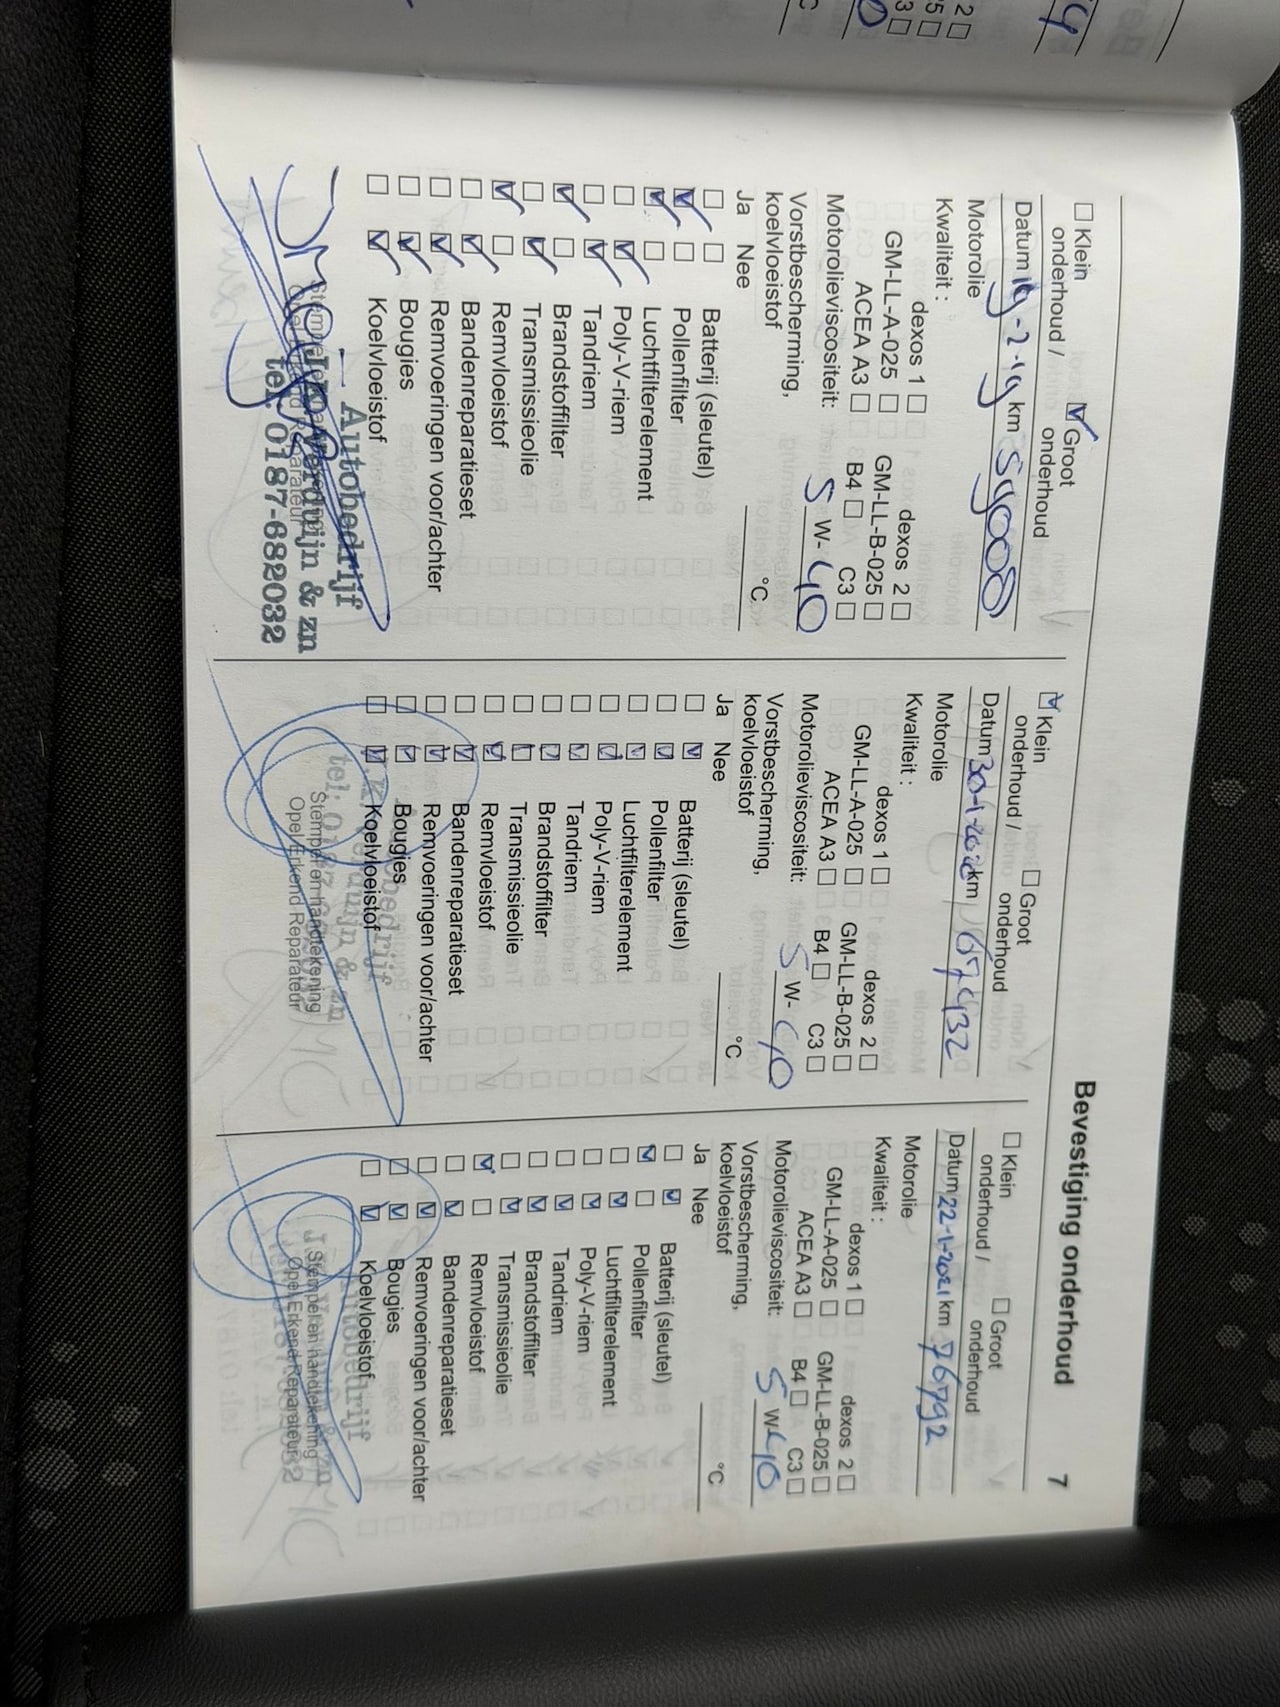 Bevestiging onderhoud 7
☐ Klein onderhoud / ☑ Groot onderhoud
Datum 19-2-19 km 59000
Motorolie
Kwaliteit :
dexos 1 ☐ dexos 2 ☐
GM-LL-A-025 ☐ GM-LL-B-025 ☐
ACEA A3 ☐ B4 ☐ C3 ☐
Motorolieviscositeit: 5 W- 40
Vorstbescherming,
koelvloeistof °C
Ja Nee
☐ ☐ Batterij (sleutel)
☑ ☐ Pollenfilter
☑ ☐ Luchtfilterelement
☐ ☑ Poly-V-riem
☐ ☑ Tandriem
☑ ☐ Brandstoffilter
☐ ☑ Transmissieolie
☑ ☐ Remvloeistof
☐ ☑ Bandenreparatieset
☐ ☑ Remvoeringen voor/achter
☐ ☑ Bougies
☐ ☑ Koelvloeistof
Autobedrijf
& zn
tel. 0187-682032
☑ Klein onderhoud / ☐ Groot onderhoud
Datum 30-1-2020 km 67432
Motorolie
Kwaliteit :
dexos 1 ☐ dexos 2 ☐
GM-LL-A-025 ☐ GM-LL-B-025 ☐
ACEA A3 ☐ B4 ☐ C3 ☐
Motorolieviscositeit: 5 W- 40
Vorstbescherming,
koelvloeistof °C
Ja Nee
☐ ☑ Batterij (sleutel)
☐ ☑ Pollenfilter
☐ ☑ Luchtfilterelement
☐ ☑ Poly-V-riem
☐ ☑ Tandriem
☐ ☑ Brandstoffilter
☐ ☑ Transmissieolie
☐ ☑ Remvloeistof
☐ ☑ Bandenreparatieset
☐ ☑ Remvoeringen voor/achter
☐ ☑ Bougies
☐ ☑ Koelvloeistof
Stempel en handtekening
Opel Erkend Reparateur
☐ Klein onderhoud / ☐ Groot onderhoud
Datum 22-1-2021 km 76792
Motorolie
Kwaliteit :
dexos 1 ☐ dexos 2 ☐
GM-LL-A-025 ☐ GM-LL-B-025 ☐
ACEA A3 ☐ B4 ☐ C3 ☐
Motorolieviscositeit: 5 W- 40
Vorstbescherming,
koelvloeistof °C
Ja Nee
☐ ☑ Batterij (sleutel)
☑ ☐ Pollenfilter
☐ ☑ Luchtfilterelement
☐ ☑ Poly-V-riem
☐ ☑ Tandriem
☐ ☑ Brandstoffilter
☐ ☑ Transmissieolie
☑ ☐ Remvloeistof
☐ ☑ Bandenreparatieset
☐ ☑ Remvoeringen voor/achter
☐ ☑ Bougies
☐ ☑ Koelvloeistof
Stempel en handtekening
Opel Erkend Reparateur